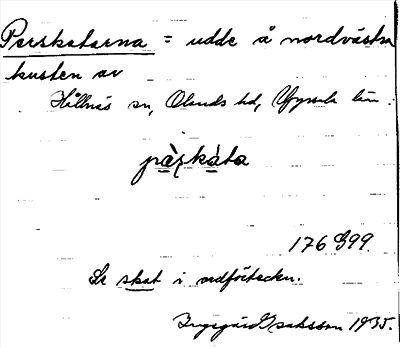 Perskatarna = udde å nordvästra
kusten av
Hållnäs sn, Olands hd, Uppsala län.
pạ̀rskàta
176 G99.
Se skat i ordförteckn.
Ingegärd Isaksson 1935.